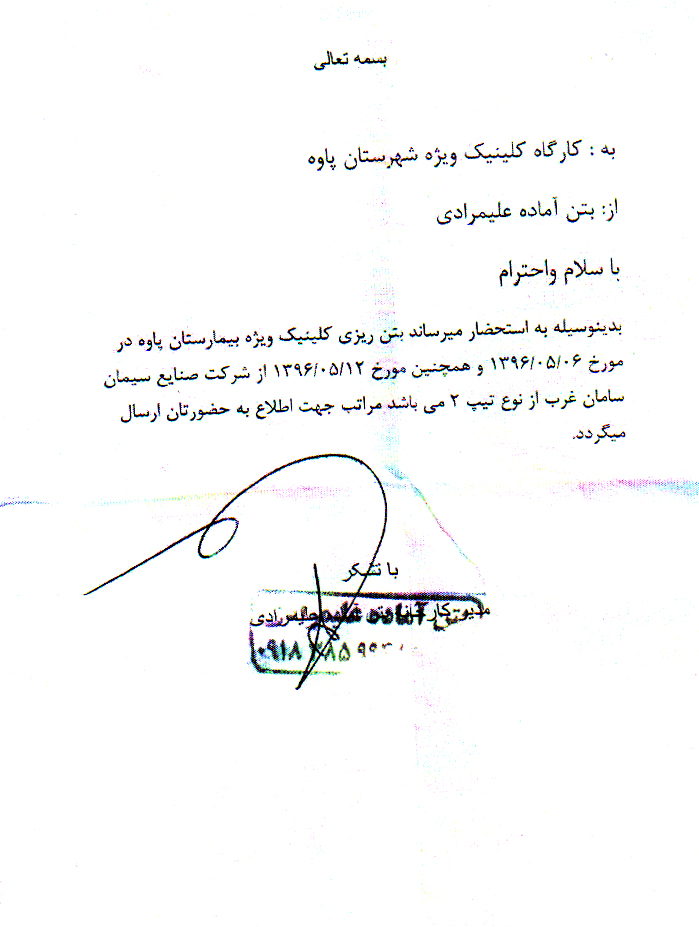 بسمه تعالی
به : کارگاه کلینیک ویژه شهرستان پاوه
از: بتن آماده علیمرادی
با سلام واحترام
بدینوسیله به استحضار میرساند بتن ریزی کلینیک ویژه بیمارستان پاوه در
مورخ ۱۳۹۶/۰۵/۰۶ و همچنین مورخ ۱۳۹۶/۰۵/۱۲ از شرکت صنایع سیمان
سامان غرب از نوع تیپ ۲ می باشد مراتب جهت اطلاع به حضورتان ارسال
میگردد.
با تشکر
مدیر کارخانه علیمرادی
۰۹۱۸